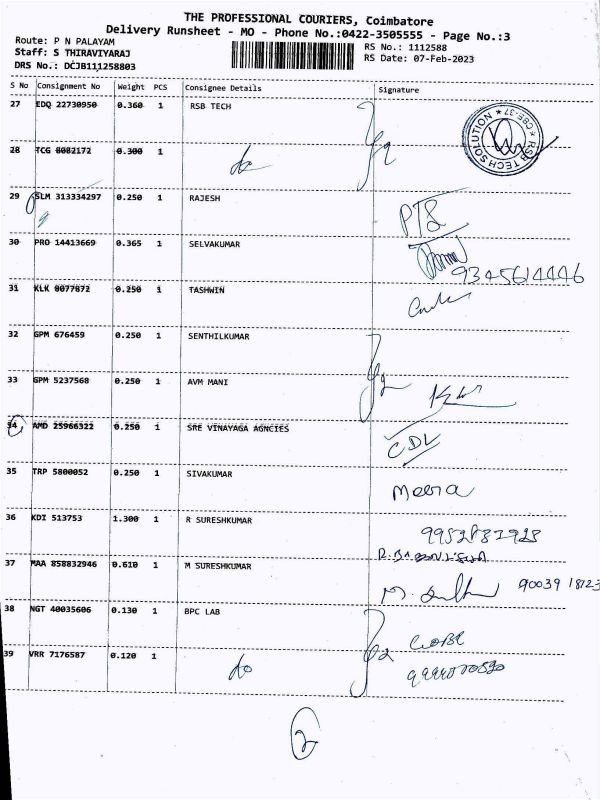 THE PROFESSIONAL COURIERS, Coimbatore
Delivery Runsheet - MO - Phone No.:0422-3505555 - Page No.:3
Route: P N PALAYAM
RS No.: 1112588
Staff: S THIRAVIYARAJ
RS Date: 07-Feb-2023
DRS No.: DCJB111258803
S No Consignment No Weight PCS Consignee Details Signature
27 EDQ 22730950 0.360 1 RSB TECH
RSB TECH SOLUTION * CBE-37 *
28 TCG 8082172 0.300 1 do
29 SLM 313334297 0.250 1 RAJESH
30 PRO 14413669 0.365 1 SELVAKUMAR
9345614446
31 KLK 0077872 0.250 1 TASHWIN
32 GPM 676459 0.250 1 SENTHILKUMAR
33 GPM 5237568 0.250 1 AVM MANI
34 AMD 25966322 0.250 1 SRE VINAYAGA AGNCIES CDL
35 TRP 5800052 0.250 1 SIVAKUMAR Meera
36 KDI 513753 1.300 1 R SURESHKUMAR
37 MAA 858832946 0.610 1 M SURESHKUMAR
38 NGT 40035606 0.130 1 BPC LAB
39 VRR 7176587 0.120 1 do